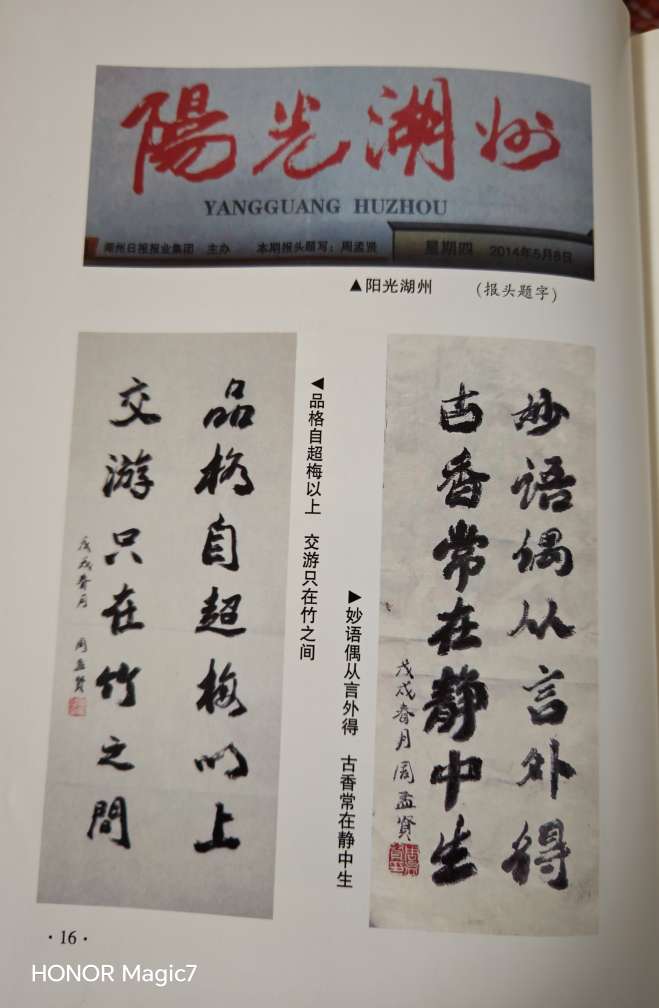 陽光湖州
YANGGUANG HUZHOU
湖州日报报业集团 主办 本期报头题写：周孟贤 星期四 2014年5月8日
▲阳光湖州 （报头题字）
品格自超梅以上
交游只在竹之間
戊戌春月 周孟賢
◀品格自超梅以上 交游只在竹之间
▶妙语偶从言外得 古香常在静中生
妙语偶从言外得
古香常在静中生
戊戌春月周孟賢
·16·
HONOR Magic7